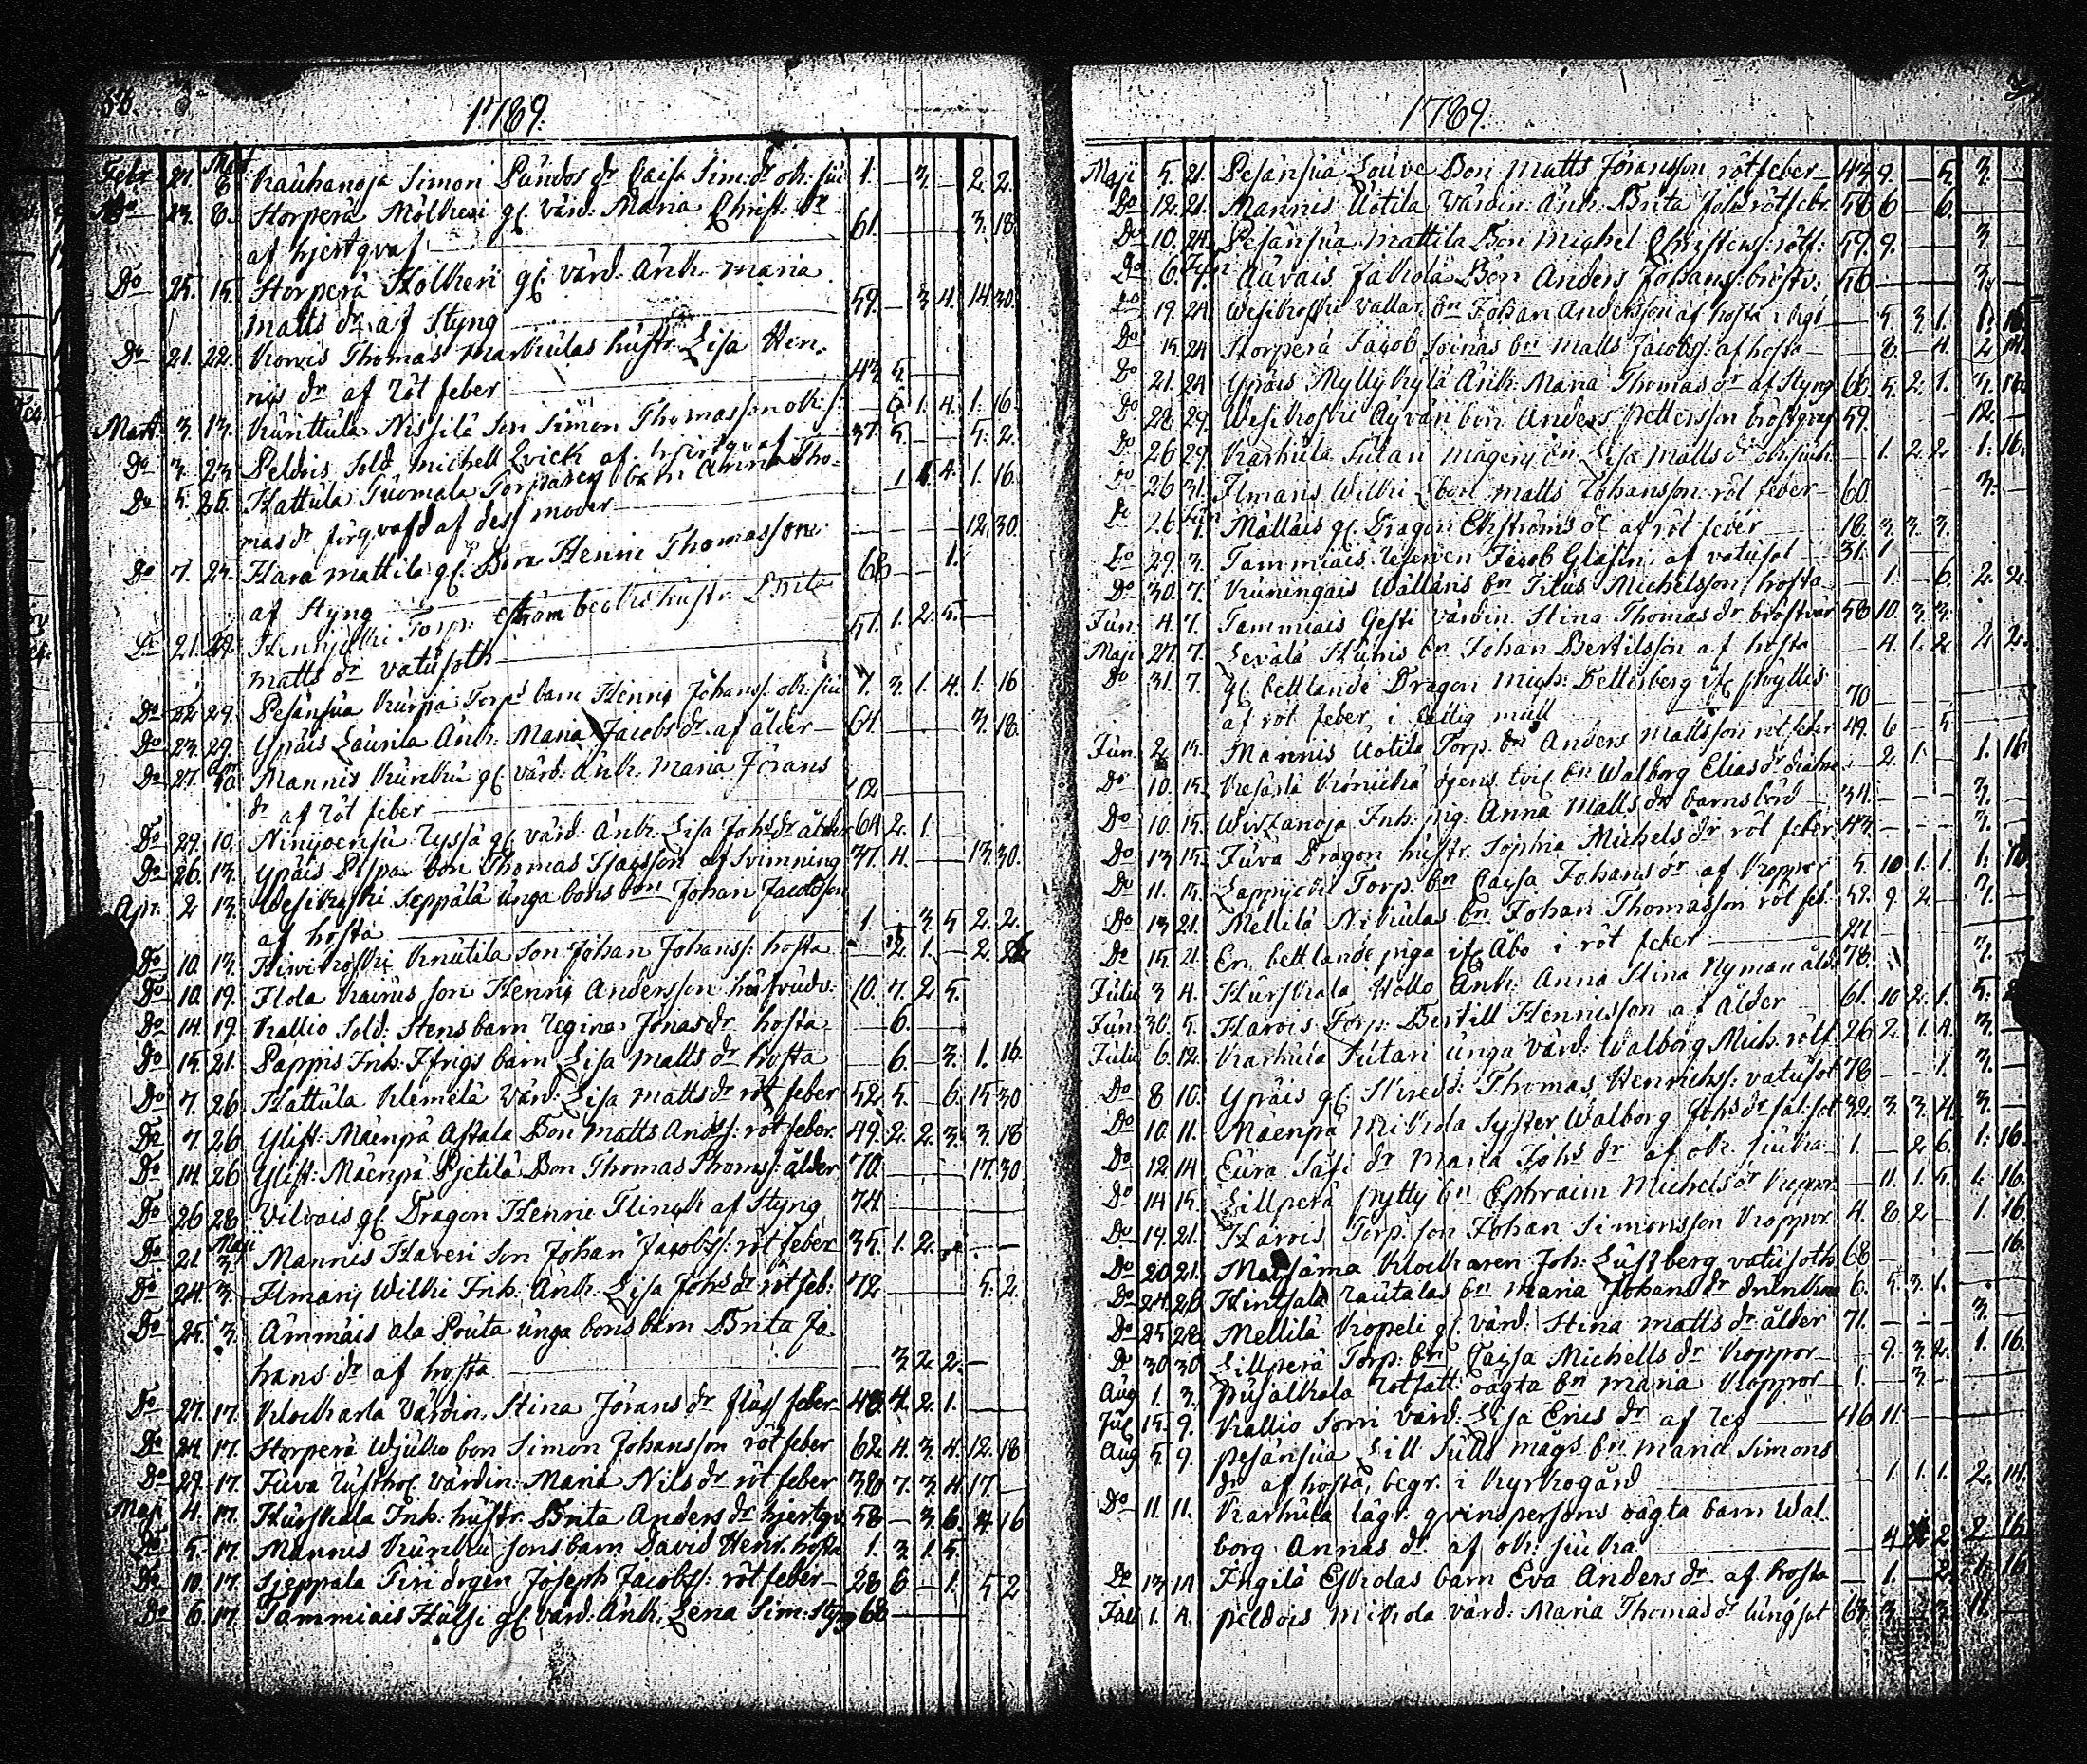 58.
1789.
Febr. 27. Mart. 8. Kauhanoja Simon Pundos dr Caisa Sim: dr ok: siu 1. — 3. — 2. 2.
Do 23. 8. Storperä Mölkeri gl. värd: Maria Christ: dr
af hjertqvaf 61. 3. 18.
Do 25. 15. Storperä Hölkeri gl. värd: Änk: Maria
Matts dr af Styng 59. — 3. 4. 14. 30.
Do 21. 22. Korvis Thomas Markulas hustr. Lisa Hen-
nis dr af röt feber 43 5.
Mart. 3. 13. Kunttula Nissilä Son Simon Thomasson ok: s: — 6. 1. 4. 1. 16.
Do 3. 23. Peldois Sold. Michell Qvick af hjertqvaf 37. 5. — — 5. 2.
Do 5. 25. Hattula Tuomala Torparen barn Anna Tho-
mas dr förqvafd af dess moder — 1. 1. 4. 1. 16.
Do 7. 23. Hara Mattila gl. Bon Henric Thomasson
af Styng 66 — — 1. 12. 30.
Do 21. 29. Torp: hustr. Brita
Matts dr vatusoth 51. 1. 2. 5. —
Do 22. 29. Pesänsua Kurja Torp: barn Henric Johans: ok: siu 7. 3. 1. 4. 1. 16
Do 23. 29. Ypäis Laurila Änk: Maria Jacobs dr af ålder 64. 3. 18.
Do 27. Apr. 10. Mannis Kunku gl. värd: änk. Maria Jörans
dr af röt feber 72
Do 29. 10. Ninijoensu Ryssä gl. värd: Änk: Lisa Johs dr ålder 64 2. 1.
Do 26. 13. Ypäis Pispa bon Thomas Isacsson af Svimning 37. 4. — — 13. 30.
Apr. 2. 13. Wesikoski Seppälä unga bons bn Johan Jacobsson
af hosta 1. — 3. 5. 2. 2.
Do 10. 13. Hiwikoski Knutila Son Johan Johanss: hosta — 2. 1. — 2.
Do 10. 19. Flola Kairus son Henric Andersson hufvudv: 10. 7. 2. 5.
Do 14. 19. Kallio Sold: Stens barn Regina Jonas dr hosta — 6.
Do 15. 21. Pappis Inh: Isrigs barn Lisa Matts dr hosta — 6. — 3. 1. 16.
Do 7. 26. Hattula Klemelä värd: Lisa Matts dr röt feber 52. 5. — 6. 15. 30
Do 7. 26. Ylist: Mäenpä Astala Bon Matts Anders: röt feber. 49. 2. 2. 3. 3. 18
Do 14. 26. Ylist: Mäenpä Pjetilä Bon Thomas Thoms: ålder 70. — — — 17. 30
Do 26. 28. Vilvais gl. Dragon Henric Flinck af Styng 74.
Do 21. Maji 3. Mannis Haveri Son Johan Jacobss: röt feber 35. 1. 2.
Do 24. 3. Ilmaris Wilki Inh: Änk. Lisa Johs dr röt feb: 72 — — — 5. 2.
Do 25. 3. Ämmäis ala Pouta unga bons barn Brita Jo-
hans dr af hosta — 3. 2. 2. —
Do 27. 17. Klockarla Värdin: Stina Jörans dr fläs feber 48. 4. 2. 1.
Do 24. 17. Storperä Wjulko bon Simon Johansson röt feber 62. 4. 3. 4. 12. 18
Do 29. 17. Juva Rusthol. värdin: Maria Nils dr röt feber 38. 7. 3. 4. 17.
Maji 4. 17. Hurskala Inh: hustr. Brita Anders dr hjertqv. 58 — 3. 6. 4. 16
Do 5. 17. Mannis Kunku sons barn David Henr. hosta 1. 3. 1. 5.
Do 10. 17. Sjeppala Piri drgen Joseph Jacobss: röt feber 28. 6 — 1. 5 2
Do 6. 17. Tammiais Hälsi gl. värd: Änk: Lena Sim: styg 68
1789.
Maji 5. 21. Pesänsua Louve Bon Matts Jöransson röt feber 43. 9. — 5. 3. —
Do 12. 21. Mannis Uotila värdin: Änk: Brita Joh: röt febr. 58. 6 — 6.
Do 10. 24. Pesänsua Mattila Bon Michel Christers: rötf: 59. 9. — — 3
Do 6. Jun. 7. Auvais Jakola Bon Anders Johans: bröstv: 56 — 3.
Do 19. 24. Wesikoski Vallar bn Johan Andersson af hosta — 5. 3. 1. 1. 16.
Do 15. 24. Storperä Jacob Soinas bn Matts Jacobs: af hosta — 8. — 4. 2. 14.
Do 21. 24. Ypäis Myllykylä Änk: Maria Thomas dr af Styng 66. 5. 2. 1. 3. 12.
Do 28. 29. Wesikoski Äyväri bon Anders Pettersson bröstqvaf 59. 12. —
Do 26. 29. Karhula Jutan mågens bn Lisa Matts dr ok: siuk. — 1. 2. 2. 1. 16.
Do 26. 31. Ilmaris Wilki Bon Matts Johansson röt feber 60. 3. —
Do 26. Jun. 7. Mälläis gl. Dragon Ekströms dr af röt feber 18. 3. 3. 3.
Do 29. 3. Tammiais Reserven Jacob Glasin, af vatusot 31. 1
Do 30. 7. Kuningais Wällans bn Filus Michelsson hosta — 1. — 6. 2. 2.
Jun. 4. 7. Tammiais Gesti värdin Stina Thomas dr bröstvär 58. 10. 3. 3.
Maji 27. 7. Levälä Humis bn Johan Bertilsson af hosta — 4. 1. 2. 2. 2.
Do 31. 7. gl. bettlande Dragon Mich: Dellerberg
af röt feber, i fattig mull 70
Jun. 2. 14. Mannis Uotila Torp. bn Anders Mattsson röt feber 49. 6 — 5
Do 10. 15. Kesäslä Bn Walborg Elias dr — 2. 1. — 1. 16
Do 10. 15. Wirzanoja Inh: pig: Anna Matts dr barnsbörd 34. 3.
Do 13. 15. Juva Dragon hustr. Sophia Michels dr röt feber 43. 3.
Do 11. 15. Lappijoki Torp. bn Caisa Johans dr af koppor 5. 10. 1. 1. 1. 16
Do 13. 21. Mellilä Nikulas bn Johan Thomasson röt feb. 52. 9. 2. — 7. —
Do 15. 21. En bettlande piga ifr. Åbo i röt feber 21
Julii 3. 4. Hurskala Wollo Änk: Anna Stina Nyman åld: 78. 3. —
Jun. 30. 5. Harois Torp: Bertill Hennisson af Ålder 61. 10. 2. 1. 5.
Julii 6. 12. Karhula Jutan unga värd: Walborg Mich: rötf. 26. 2. 1. 4. 3. —
Do 8. 10. Ypäis gl. Skredd: Thomas Henricks: vatusot 78 — 1. 3. —
Do 10. 11. Mäenpä Mikola Syster Walborg Johs dr fal: sot 32. 3. 3. 4. 3. —
Do 12. 14. Eura Säfi dr Maria Johs dr af ok. siuka 1. — 2. 6. 1. 16.
Do 14. 15. Lillperä Pytty bn Ephraim Michels dr koppor — 11. 1. 5. 1. 16.
Do 19. 21. Harois Torp. son Johan Simonsson koppor. 4. 8. 2. — 1. 16.
Do 20. 21. Klockaren Joh: Lustberg vatusoth 68 — 16.
Do 24. 26. Hinsala Rautalas bn Maria Johans dr drunkna 6. 5. 3. 1.
Do 25. 28. Mellilä Kopeli gl. värd: Stina Matts dr ålder 71. — — — 3. —
Do 30. 30. Lillperä Torp: bn Caisa Michells dr koppor — 9. 3. 2. 1. 16.
Aug. 1. 3. Pusalkala Rotfatt: oägta bn Maria koppor 1. — 3. —
Jul. 15. 9. Kallio Sorri värd: Lisa Erics dr af Ref 46. 11.
Aug. 5. 9. Pesänsua Lill Sullo mågs bn Maria Simons
dr af hosta, begr: i Kyrkogård — 1. 1. 1. 2. 14.
Do 11. 11. Karhula lägr. qvinspersons oägta barn Wal-
borg Annas dr af ok: siuka — 4 2. 2. 16.
Do 13. 14. Ingilä Eskolas barn Eva Anders dr af hosta — 1. — 2. 1. 16
Juli 1. 4. Peldois Mikola värd: Maria Thomas dr lungsot 63. 3. — 3. 11. —